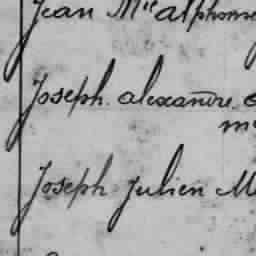 Jean Mie alphonse
Joseph. alexandre.
Joseph Julien